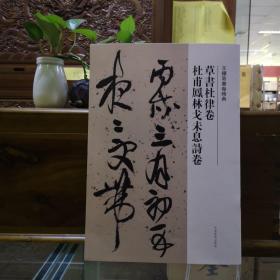 草書杜律卷
杜甫鳳林戈未息詩卷
丙戌三月初五
夜二更帶